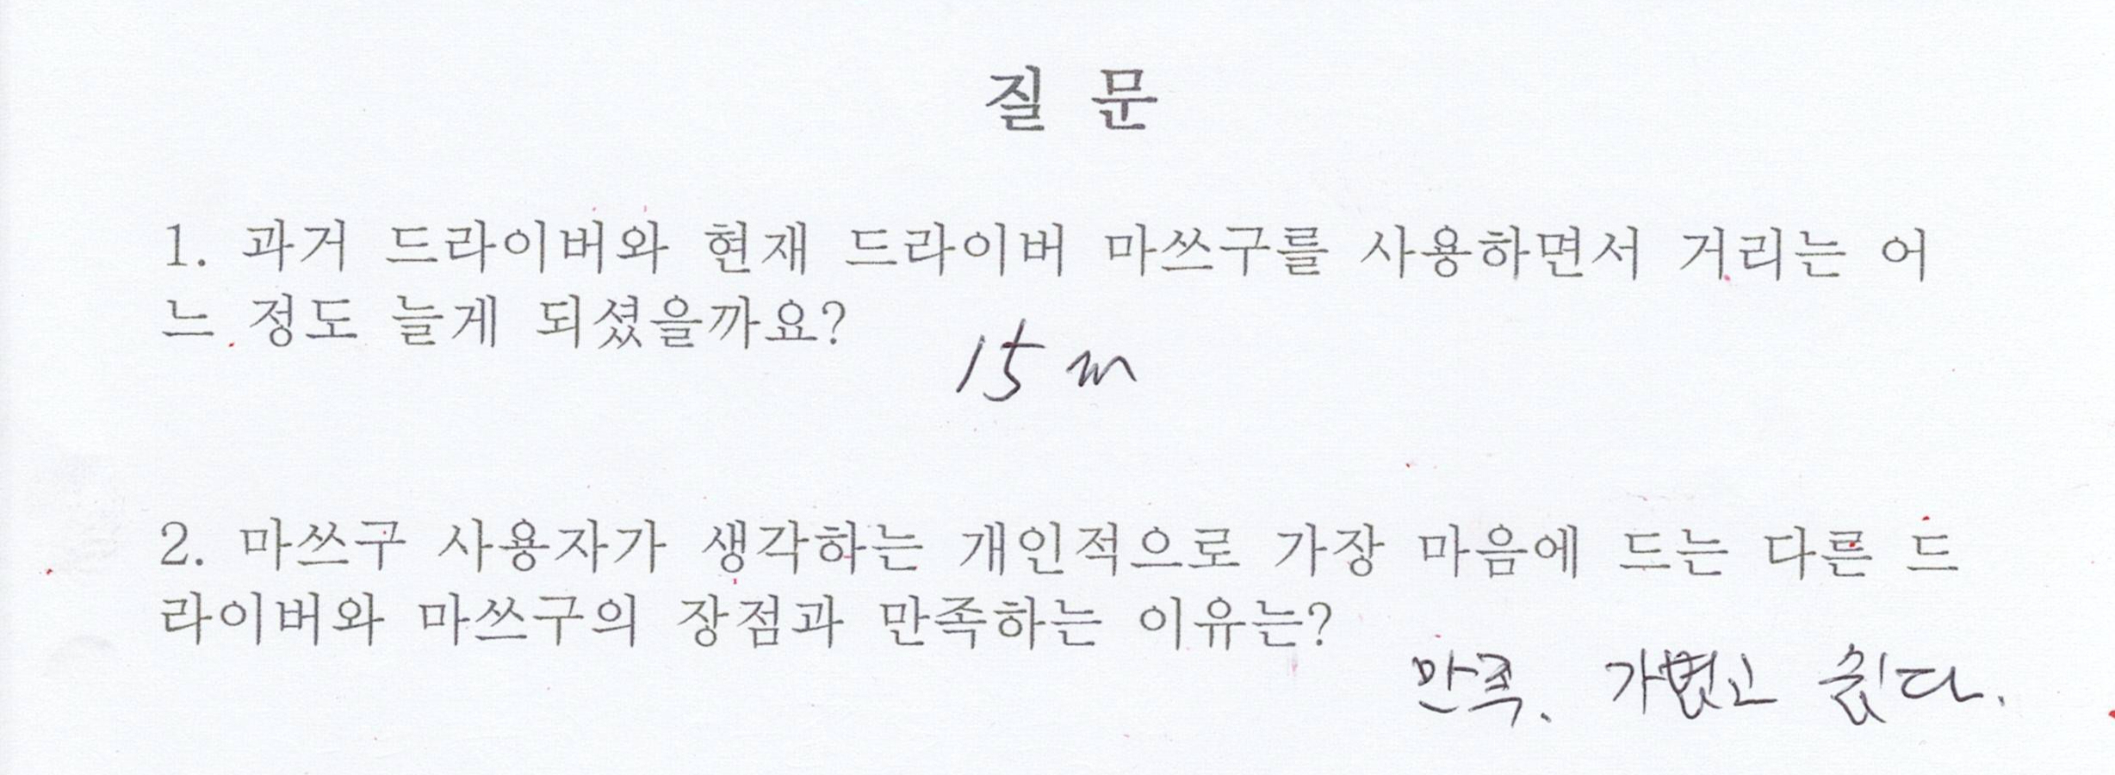 질 문
1. 과거 드라이버와 현재 드라이버 마쓰구를 사용하면서 거리는 어
느 정도 늘게 되셨을까요?
15 m
2. 마쓰구 사용자가 생각하는 개인적으로 가장 마음에 드는 다른 드
라이버와 마쓰구의 장점과 만족하는 이유는?
만족. 가볍고